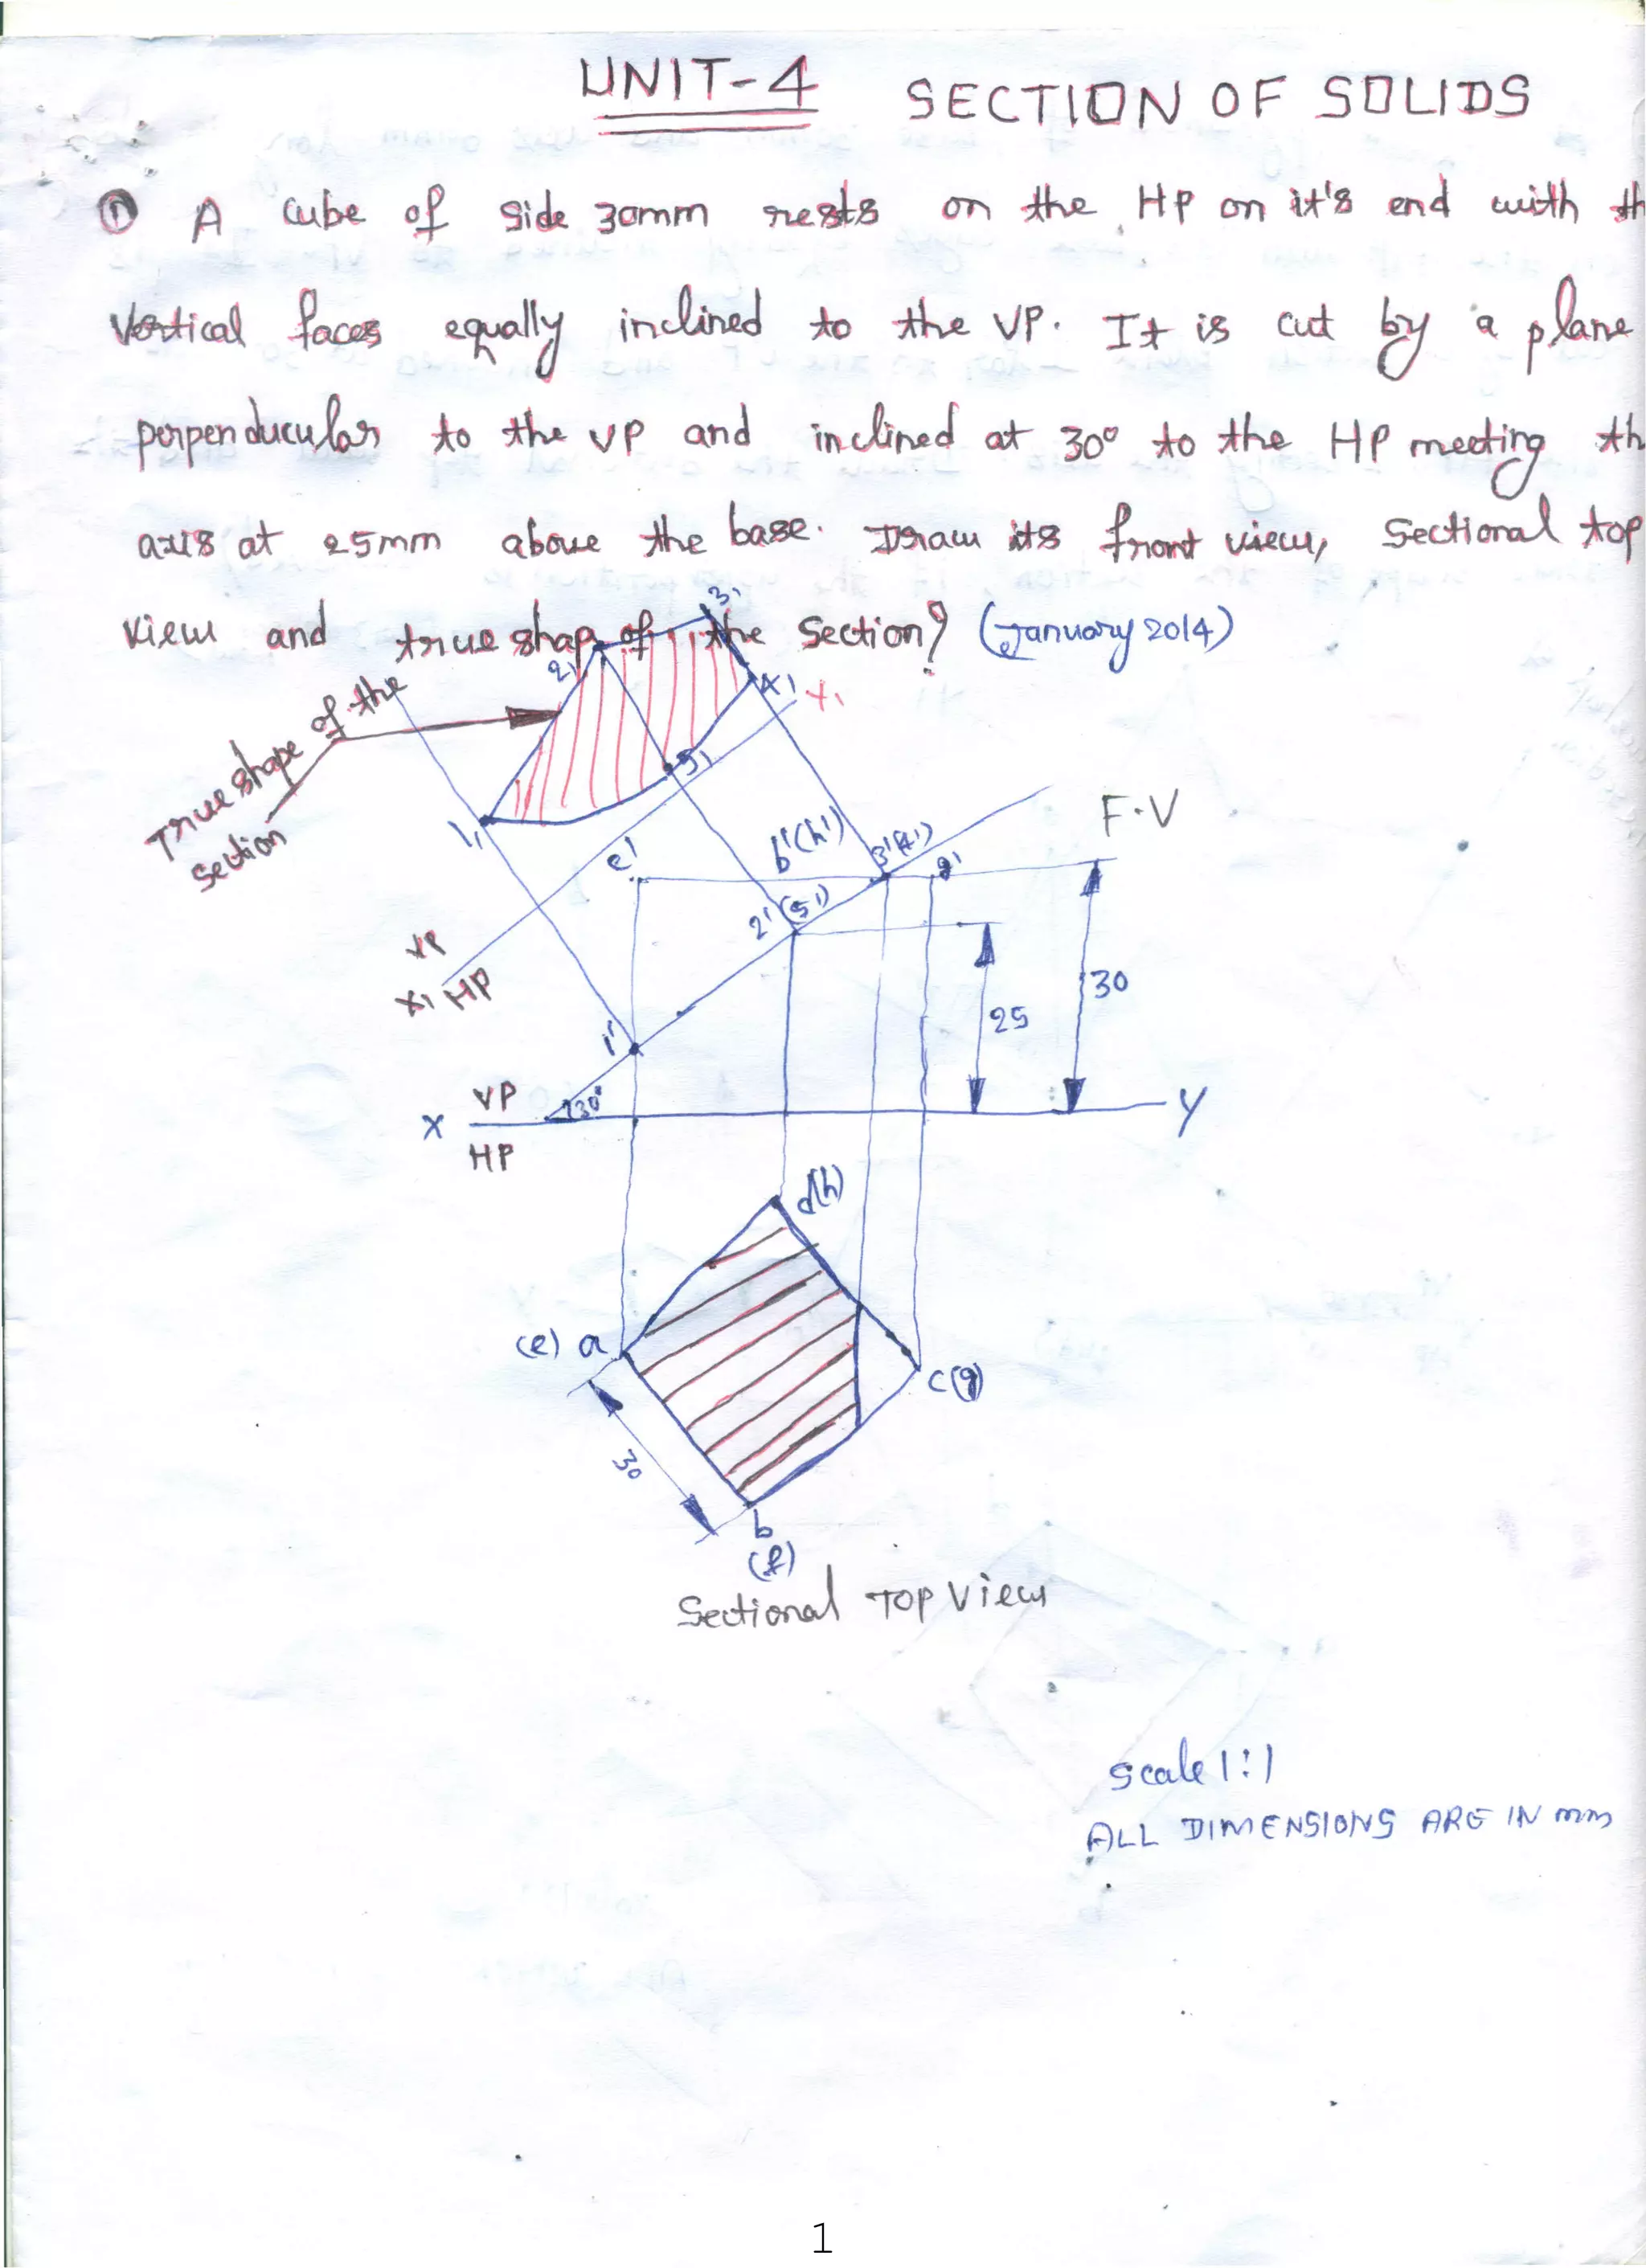 UNIT-4 SECTION OF SOLIDS
① A cube of side 30mm rests on the HP on it's end with th
vertical faces equally inclined to the VP. It is cut by a plane
perpenducular to the VP and inclined at 30° to the HP meeting th
axis at 25mm above the base. Draw its front view, Sectional top
view and true shap of the Section? (January 2014)
3₁
2₁
4₁
Y₁
True shape of the
Section
5₁
1₁
F.V
b'(h')
3'(4')
e'
g'
2'(5')
VP
X₁ HP
30
25
1'
VP
X
30°
Y
HP
d(h)
(e) a
c(g)
30
b
(f)
Sectional TOP View
Scale 1:1
ALL DIMENSIONS ARE IN mm
1